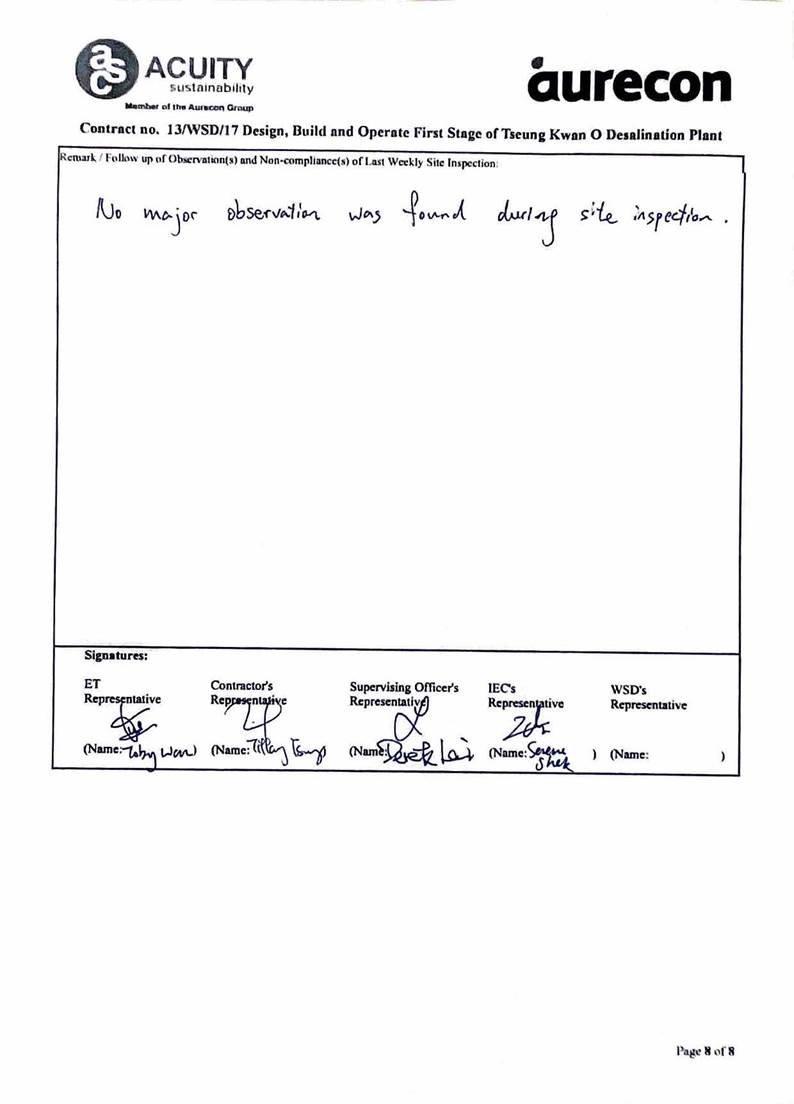 asc ACUITY
sustainability
Member of the Aurecon Group
aurecon
Contract no. 13/WSD/17 Design, Build and Operate First Stage of Tseung Kwan O Desalination Plant
Remark / Follow up of Observation(s) and Non-compliance(s) of Last Weekly Site Inspection:
No major observation was found during site inspection.
Signatures:
ET Contractor's Supervising Officer's IEC's WSD's
Representative Representative Representative Representative Representative
(Name: Toby Wan) (Name: Tiffany Tsung (Name: Derek Lai (Name: Serene ) (Name: )
Shek
Page 8 of 8